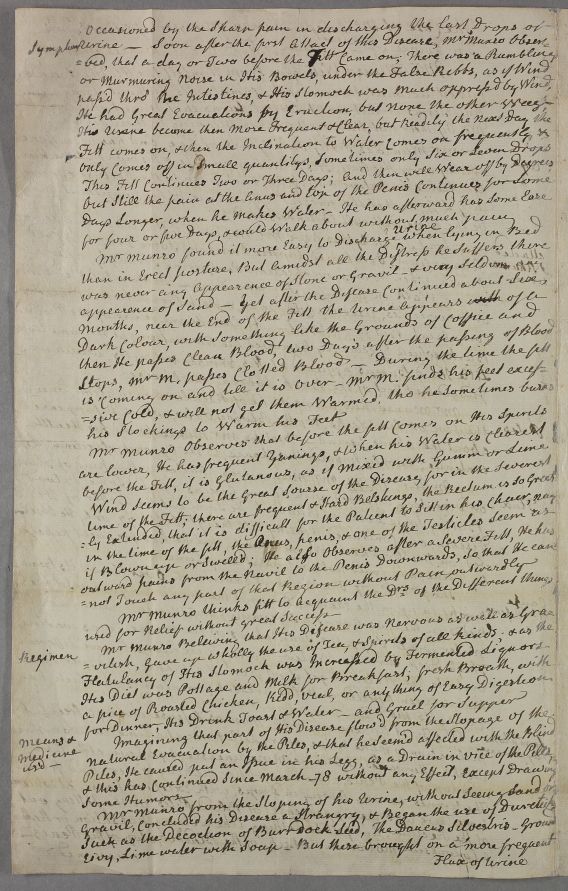 Occasioned by the Sharp pain in discharging the last Drops of
Symptoms
Urine — Soon after the first Attack of this Disease, Mr Munro Obser-
=bed, that a day or Two before the Fitt Came on, There was a Rumbling
or Murmuring Noise in His Bowels, under the False Ribbs, as if Wind
pass'd thro the Intestines, & His Stomoch was much oppressed by Wind,
He had Great Evacuations by Eruction, but none the other Way,
His Urine become then More Frequent & Clear, but Readily the Next Day the
Fitt comes on, & then the Inclination to Water Comes on frequently, &
only Comes off in Small quantitys, Sometimes only Six or Seven Drops
This Fitt Continues Two or Three Days; and then will Wear off by Degrees
but Still the pain at the anus and top of the Penis Continues for Some
Days Longer, when he Makes Water — He has afterward has Some Ease
for four or five Days, & could Walk about without much pain
Mr Munro found it more Easy to Discharge Urine when lying in Bed
than in Erect posture, But amidst all the Distress he Suffers there
was never any Appearence of Stone or Gravil — & very Seldom
appearence of Sand — Yet after the Disease Continued about Six
Months, near the End of the Fitt the Urine appears of a
Dark Colour, with Something like the Grounds of Coffice and
then He passes Clean Blood, two Days after the passing of Blood
Stops, Mr M. passes Clotted Blood — During the time the fitt
is Coming on and till it is over — Mr M. finds his feet exces-
=sive Cold, & will not get them Warmed tho he Sometimes burns
his Stockings to Warm his Feet
Mr Munro Observes that before the fitt Comes on His Spirits
are lower, He has frequent Yanings, & when his Water is Clearest
before the Fitt, it is Glutanous, as if Mixed with Gumm or Lime
Wind Seems to be the Great Sourse of the Disease, for in the Severest
time of the Fitt, there are frequent & Hard Belshings, the Rectum is So Great
=ly Extended, that it is difficult for the Patient to Sitt in his Chair, nay
in the time of the fitt, the Anus, penis, & one of the Testicles Seem as
if Blown up or Swelled; He also Observes after a Severe Fitt, He has
outward pains from the Navil to the Penis Downwards, So that He can
=not Touch any part of that Region without Pain outwardly
Mr Munro thinks fitt to acquaint the Drs of the Different things
used for Relief without great Success —
Regimen
Mr Munro Beleiving that His Disease was Nervous as well as Gra-
=velish, Gave up Wholly the use of Tea, & Spirits of all kinds, & as the
Flatulancy of His Stomock was Increased by Fermented Liquors
His Diet was Pottage and Milk for Breakfast, fresh Broath, with
a piece of Roasted Chicken, Kidd, Veal, or any thing of Easy Digestion
for Dinner, His Drink Toast & Water — and Gruel for Supper
Means &
Medicine
used —
Imagining that part of His Disease flow'd from the Stopage of the
Natural Evacuation by the Piles, & that he Seem'd affected with the Blind
Piles, He caused put an Issue in his Legg, as a Drain in vice of the Piles,
& this has Continued Since March —78 without any Effect, Except Drawing
Some Humors —
Mr Munro from the Stoping of his Urine, without Seeing Sand or
Gravil, Concluded his Disease a Strangry, & Began the use of Diureticks
Such as the Decoction of Burr dock Seed, The Daucus Silvestris — Ground
Eivy, Lime water with Soap — But these brought on a more frequent
Flux of Urine